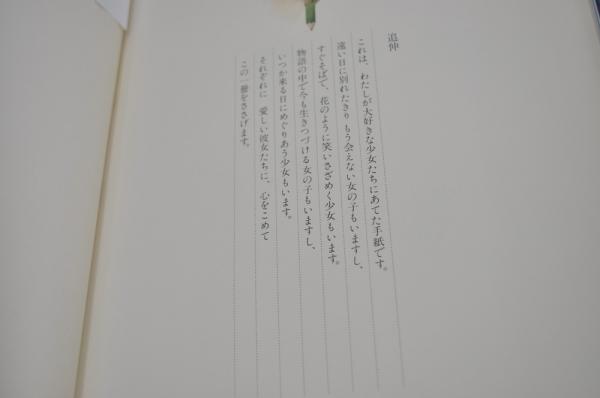 追伸
これは、わたしが大好きな少女たちにあてた手紙です。
遠い日に別れたきり もう会えない女の子もいますし、
すぐそばで、花のように笑いさざめく少女もいます。
物語の中で今も生きつづける女の子もいますし、
いつか来る日にめぐりあう少女もいます。
それぞれに 愛しい彼女たちに、心をこめて
この一冊をささげます。